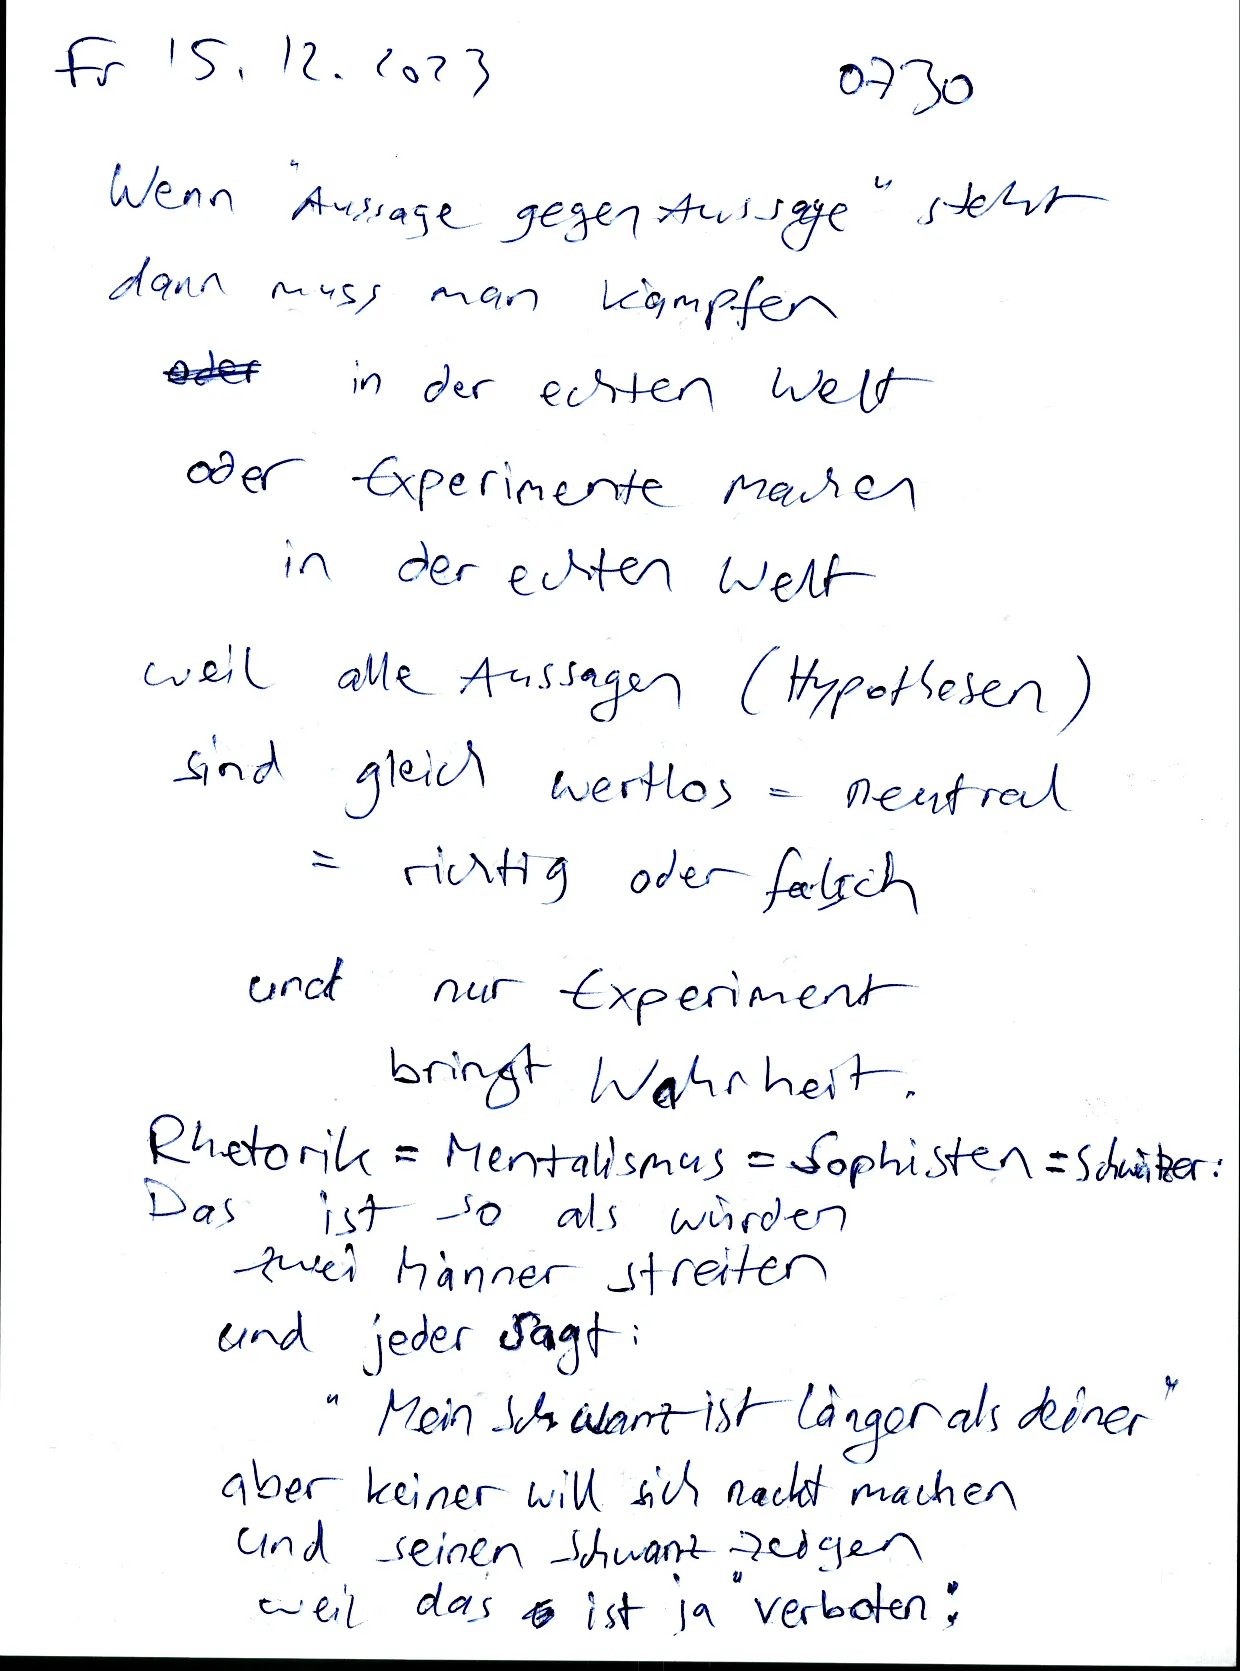 Fr 15.12.2023 0730
Wenn "Aussage gegen Aussage" steht
dann muss man kämpfen
oder in der echten Welt
oder Experimente machen
in der echten Welt
weil alle Aussagen (Hypothesen)
sind gleich wertlos = neutral
= richtig oder falsch
und nur Experiment
bringt Wahrheit.
Rhetorik = Mentalismus = Sophisten = Schwätzer:
Das ist so als würden
zwei Männer streiten
und jeder sagt:
"Mein Schwanz ist länger als deiner"
aber keiner will sich nackt machen
und seinen Schwanz zeigen
weil das ist ja "verboten"